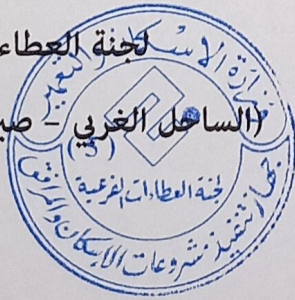 لجنة العطاء
(الساحل الغربي - صب
وزارة الإسكان والتعمير
(5)
لجنة العطاءات الفرعية
جهاز تنفيذ مشروعات الإسكان والمرافق